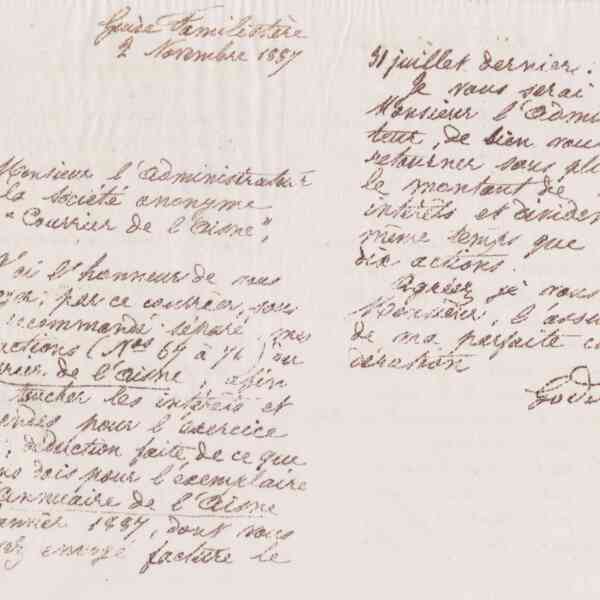 Guise Familistère
2 Novembre 1887
Monsieur l'administrateur
la société anonyme
"Courrier de l'aisne",
J'ai l'honneur de vous
par ce courrier, sous
recommandé séparé mes
actions (Nos 67 à 76) du
Courrier de l'aisne, afin
toucher les intérêts et
dendes pour l'exercice
déduction faite de ce que
vous dois pour l'exemplaire
annuaire de l'aisne
janvier 1887, dont vous
envoyé facture le
31 juillet dernier.
Je vous serai
Monsieur l'admi
teur, de bien vou
retourner sous pli
le montant de
intérêts et dividen
même temps que
dix actions.
Agréez, je vous
Monsieur, l'assu
de ma parfaite co
dération
God